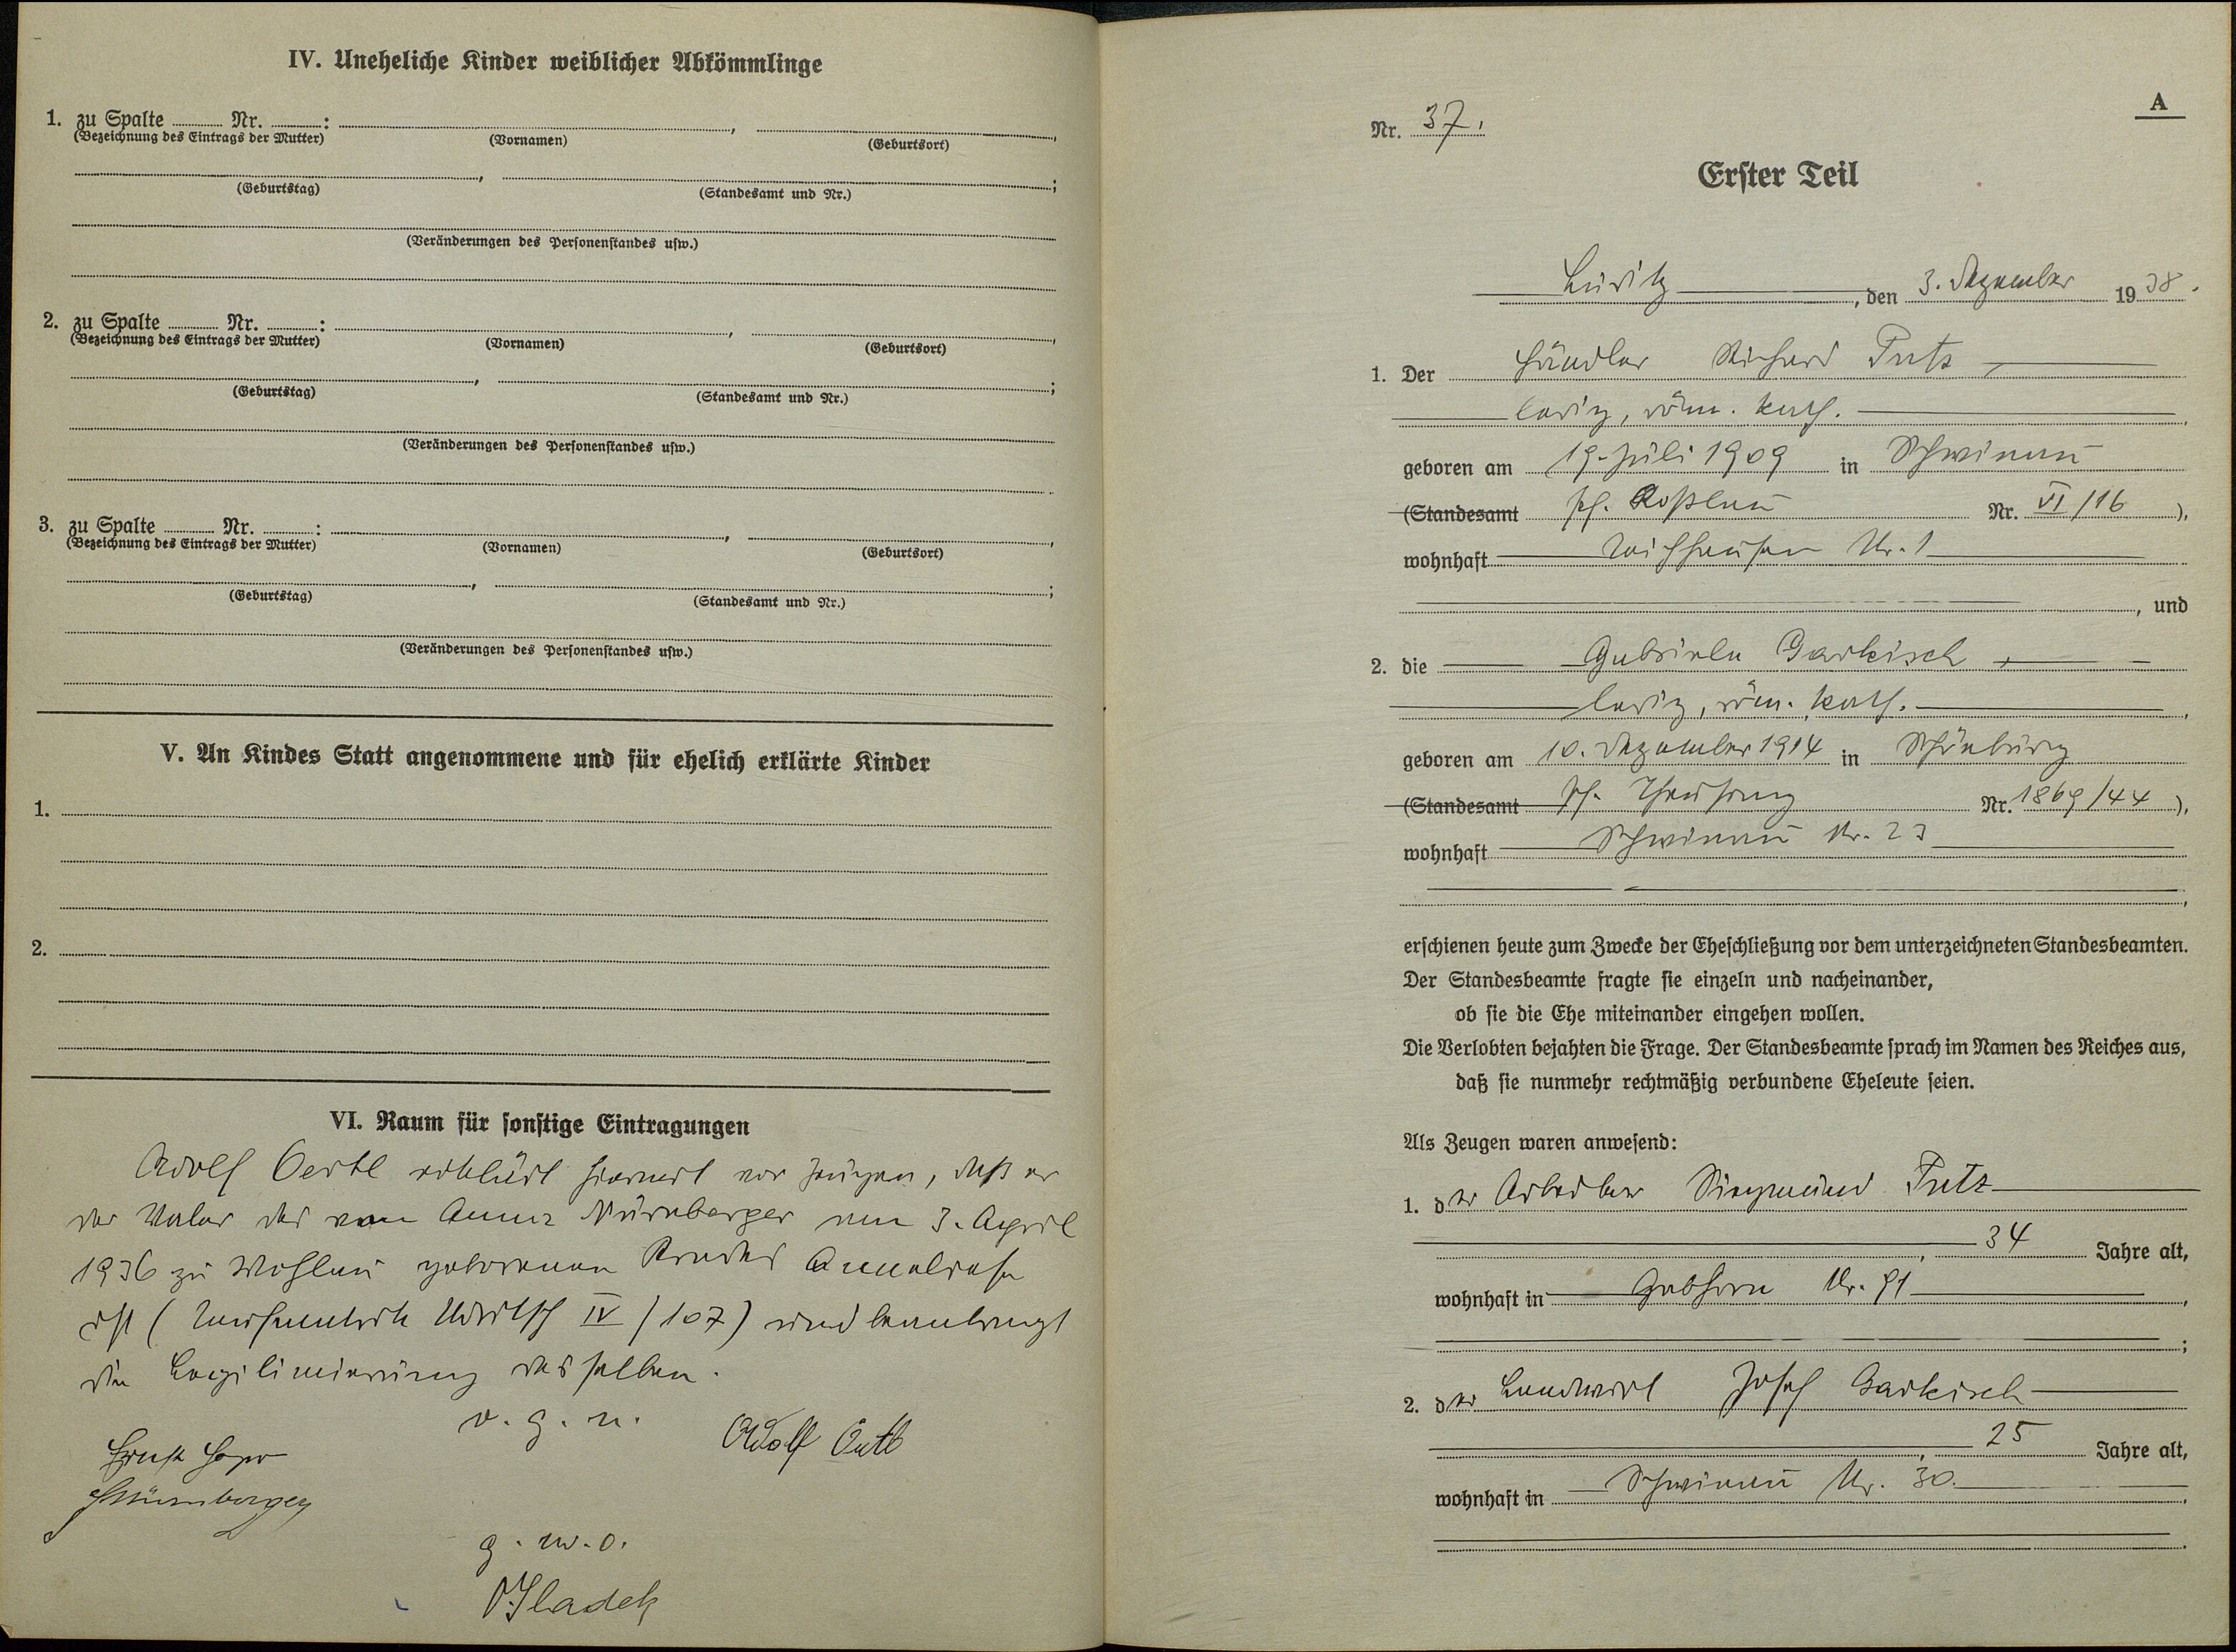 IV. Uneheliche Kinder weiblicher Abkömmlinge
1. zu Spalte ........ Nr. ........:
(Bezeichnung des Eintrags der Mutter) (Vornamen) (Geburtsort)
(Geburtstag) (Standesamt und Nr.)
(Veränderungen des Personenstandes usw.)
2. zu Spalte ........ Nr. ........:
(Bezeichnung des Eintrags der Mutter) (Vornamen) (Geburtsort)
(Geburtstag) (Standesamt und Nr.)
(Veränderungen des Personenstandes usw.)
3. zu Spalte ........ Nr. ........:
(Bezeichnung des Eintrags der Mutter) (Vornamen) (Geburtsort)
(Geburtstag) (Standesamt und Nr.)
(Veränderungen des Personenstandes usw.)
V. An Kindes Statt angenommene und für ehelich erklärte Kinder
1.
2.
VI. Raum für sonstige Eintragungen
Adolf Oertl erklärt hiermit vor Zeugen, daß er
der Vater des von Anna Nürnberger am 3. April
1936 zu Wohlau geborenen Kindes Anneliese
ist ( Udritsch IV / 107) und beantragt
die Legitimierung desselben.
v. g. u.
Adolf Oertl
Ernst
Nürnberger
g. w. o.
Sladek
A
Nr. 37.
Erster Teil
Luditz, den 3. Dezember 1938.
1. Der Händler Richard Tutz,
ledig, röm. kath.
geboren am 19. Juli 1909 in Schwinau
(Standesamt Pf. Koßlau Nr. VI/16),
wohnhaft Teichhäusen Nr. 1
, und
2. die Gabriele Garkisch,
ledig, röm. kath.
geboren am 10. Dezember 1914 in Schönburg
(Standesamt Pf. Theusing Nr. 1869/44),
wohnhaft Schwinau Nr. 23
erschienen heute zum Zwecke der Eheschließung vor dem unterzeichneten Standesbeamten.
Der Standesbeamte fragte sie einzeln und nacheinander,
ob sie die Ehe miteinander eingehen wollen.
Die Verlobten bejahten die Frage. Der Standesbeamte sprach im Namen des Reiches aus,
daß sie nunmehr rechtmäßig verbundene Eheleute seien.
Als Zeugen waren anwesend:
1. der Arbeiter Siegmund Tutz
34 Jahre alt,
wohnhaft in Gabhorn Nr. 91
2. der Landwirt Josef Garkisch
25 Jahre alt,
wohnhaft in Schwinau Nr. 30.